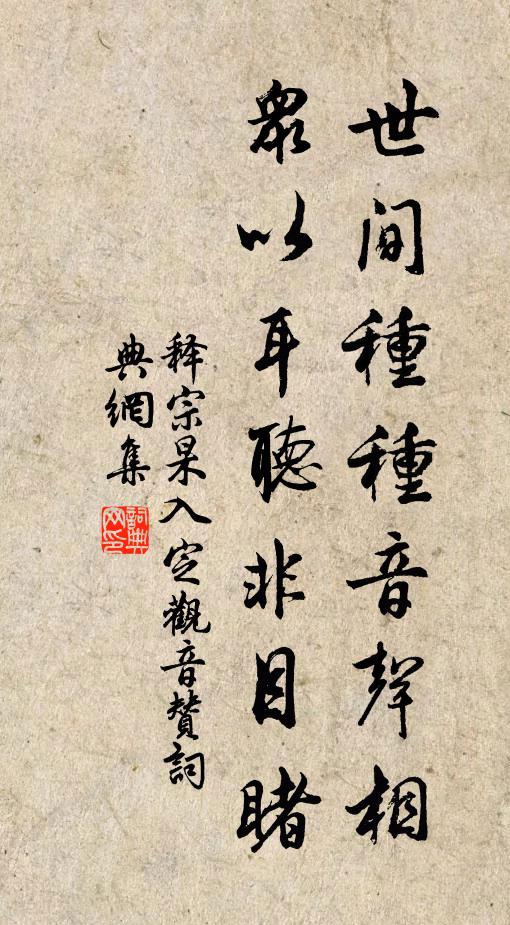 世間種種音聲相
眾以耳聽非目睹
释宗杲入定觀音赞詞
典網集
詞典網印